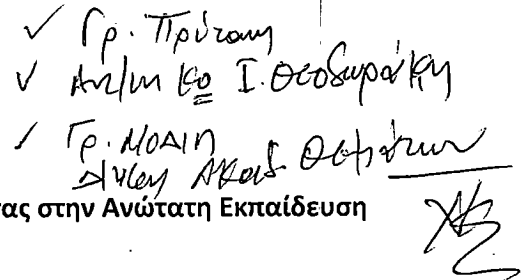 ✓ Γρ. Πρύτανη
✓ Αντ/νη κο Ι. Θεοδωράκη
✓ Γρ. ΜΟΔΙΠ
Δ/νση Ακαδ. Θεμάτων
τας στην Ανώτατη Εκπαίδευση